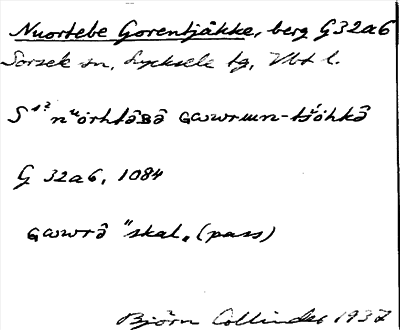 Nuortebe Gorentjåkke, berg G32a6
Sorsele sn, Lycksele tg, Vbt l.
S⁴? nᵘörhtəʙə̂ ɢɑwrɯn-tš́ohkə̂
G 32a6, 1084
ɢɑwrə̂ "skal" (pass)
Björn Collinder 1937